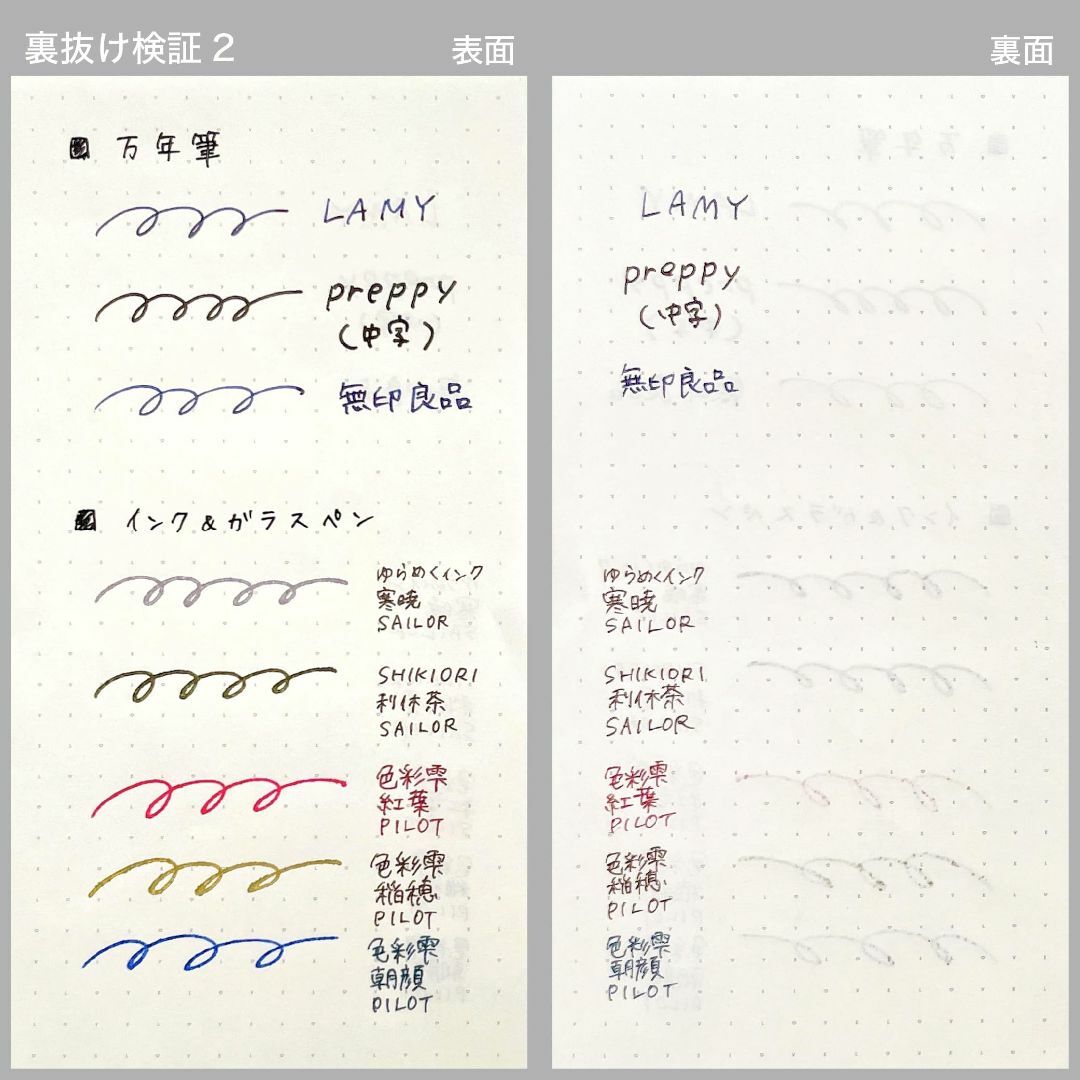 裏抜け検証2
表面
裏面
万年筆
LAMY
preppy
(中字)
無印良品
インク&ガラスペン
ゆらめくインク
寒暁
SAILOR
SHIKIORI
利休茶
SAILOR
色彩雫
紅葉
PILOT
色彩雫
稲穂
PILOT
色彩雫
朝顔
PILOT
LAMY
preppy
(中字)
無印良品
ゆらめくインク
寒暁
SAILOR
SHIKIORI
利休茶
SAILOR
色彩雫
紅葉
PILOT
色彩雫
稲穂
PILOT
色彩雫
朝顔
PILOT